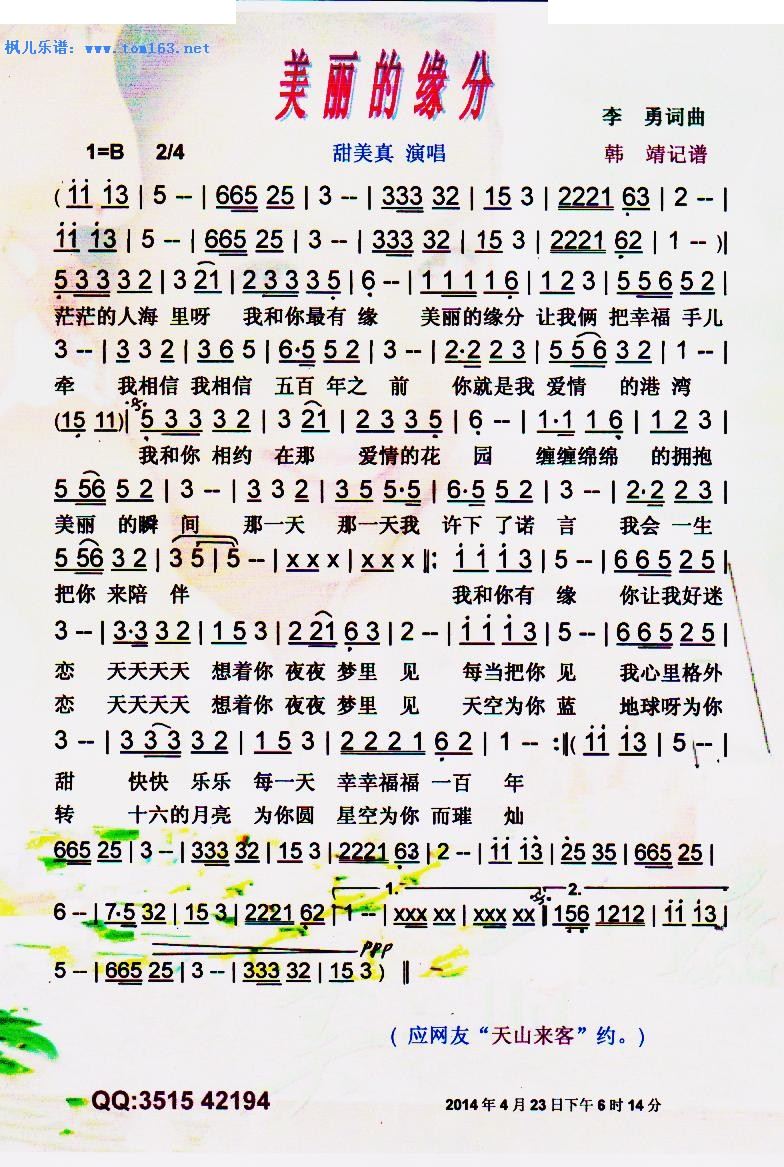 枫儿乐谱：www.tom163.net
美丽的缘分
李 勇词曲
1=B 2/4 甜美真 演唱 韩 靖记谱
( 1̇1̇ 1̇3̇ | 5 -- | 665 25 | 3 -- | 333 32 | 15 3 | 2221 6̣3 | 2 -- |
1̇1̇ 1̇3̇ | 5 -- | 665 25 | 3 -- | 333 32 | 15 3 | 2221 6̣2 | 1 -- )|
5̣ 3 3 3 2 | 3 21 | 2 3 3 3 5̣ | 6̣ -- | 1 1 1 1 6̣ | 1 2 3 | 5 5 6 5 2 |
茫茫的人海 里呀 我和你最有 缘 美丽的缘分 让我俩 把幸福 手儿
3 -- | 3 3 2 | 3 6 5 | 6·5 5 2 | 3 -- | 2·2 2 3 | 5̣ 5̣ 6̣ 3 2 | 1 -- |
牵 我相信 我相信 五百 年之 前 你就是我 爱情 的港 湾
(15 11)| 5̣ 3 3 3 2 | 3 21 | 2 3 3 3 5̣ | 6̣ -- | 1·1 1 6̣ | 1 2 3 |
我和你 相约 在那 爱情的花 园 缠缠绵绵 的拥抱
5 56 5 2 | 3 -- | 3 3 2 | 3 5 5·5 | 6·5 5 2 | 3 -- | 2·2 2 3 |
美丽 的瞬 间 那一天 那一天我 许下 了诺 言 我会 一生
5̣ 5̣6̣ 3 2 | 3 5 | 5 -- | x x x | x x x ‖: 1̇ 1̇ 1̇ 3̇ | 5 -- | 6 6 5 2 5 |
把你 来陪 伴 我和你有 缘 你让我好迷
3 -- | 3·3 3 2 | 1 5 3 | 2 2 21 6̣ 3 | 2 -- | 1̇ 1̇ 1̇ 3̇ | 5 -- | 6 6 5 2 5 |
恋 天天天天 想着你 夜夜 梦里 见 每当把你 见 我心里格外
恋 天天天天 想着你 夜夜 梦里 见 天空为你 蓝 地球呀为你
3 -- | 3 3 3 3 2 | 1 5 3 | 2 2 2 1 6̣ 2 | 1 -- :‖( 1̇1̇ 1̇3̇ | 5 -- |
甜 快快 乐乐 每一天 幸幸福福 一百 年
转 十六的月亮 为你圆 星空为你 而璀 灿
665 25 | 3 -- | 333 32 | 15 3 | 2221 6̣3 | 2 -- | 1̇1̇ 1̇3̇ | 25 35 | 665 25 |
1. 2.
6 -- | 7·5 32 | 15 3 | 2221 6̣2 | 1 -- | xxx xx | xxx xx :‖ 15̣6̣ 1212 | 1̇1̇ 1̇3̇ |
ppp
5 -- | 665 25 | 3 -- | 333 32 | 15 3 ) ‖
( 应网友“天山来客”约。)
QQ:3515 42194 2014年4月23日下午6时14分